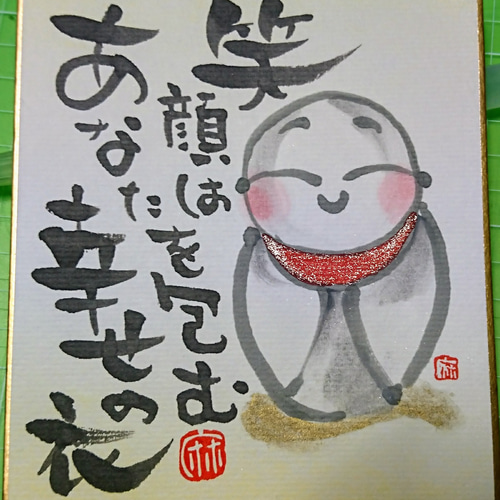 笑顔は
あなたを包む
幸せの衣
麻
麻